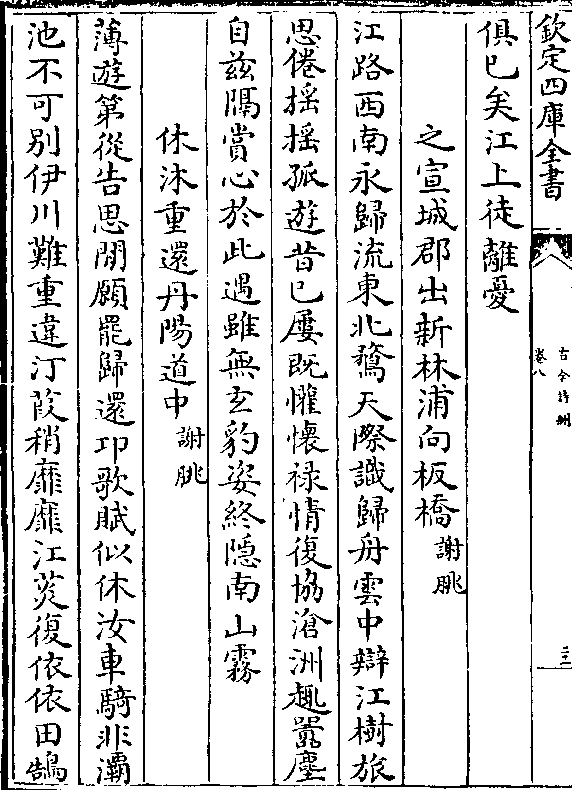 欽定四庫全書
古今詩刪
卷八
俱已矣江上徒離憂
之宣城郡出新林浦向板橋 謝朓
江路西南永歸流東北騖天際識歸舟雲中辯江樹旅
思倦揺揺孤遊昔已屢既懽懷禄情復協滄洲趣囂塵
自兹隔賞心於此遇雖無玄豹姿終隱南山霧
休沐重還丹陽道中 謝朓
薄遊第從告思閒願罷歸還卭歌賦似休汝車騎非灞
池不可别伊川難重違汀葭稍靡靡江菼復依依田鵠